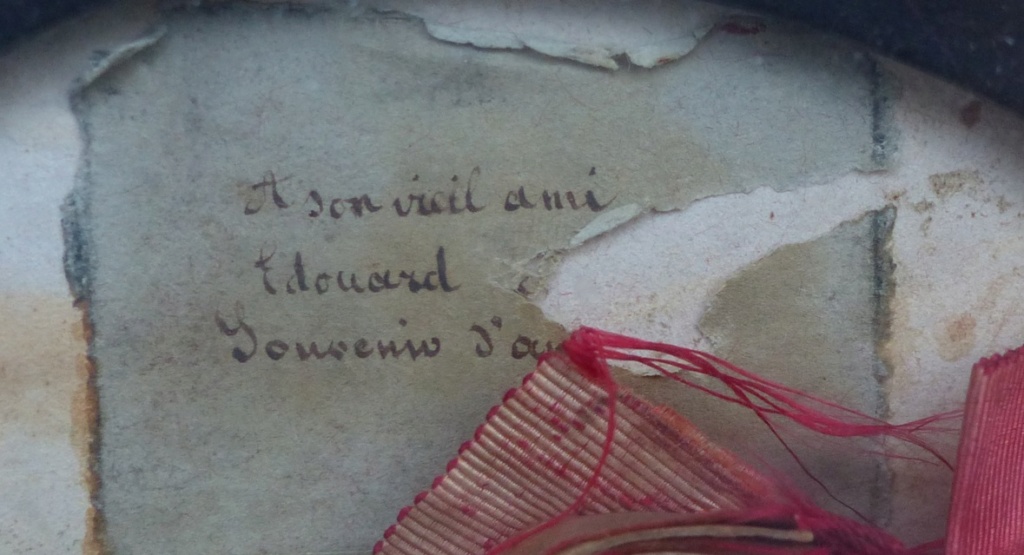 A son vieil ami
Edouard
Souvenir